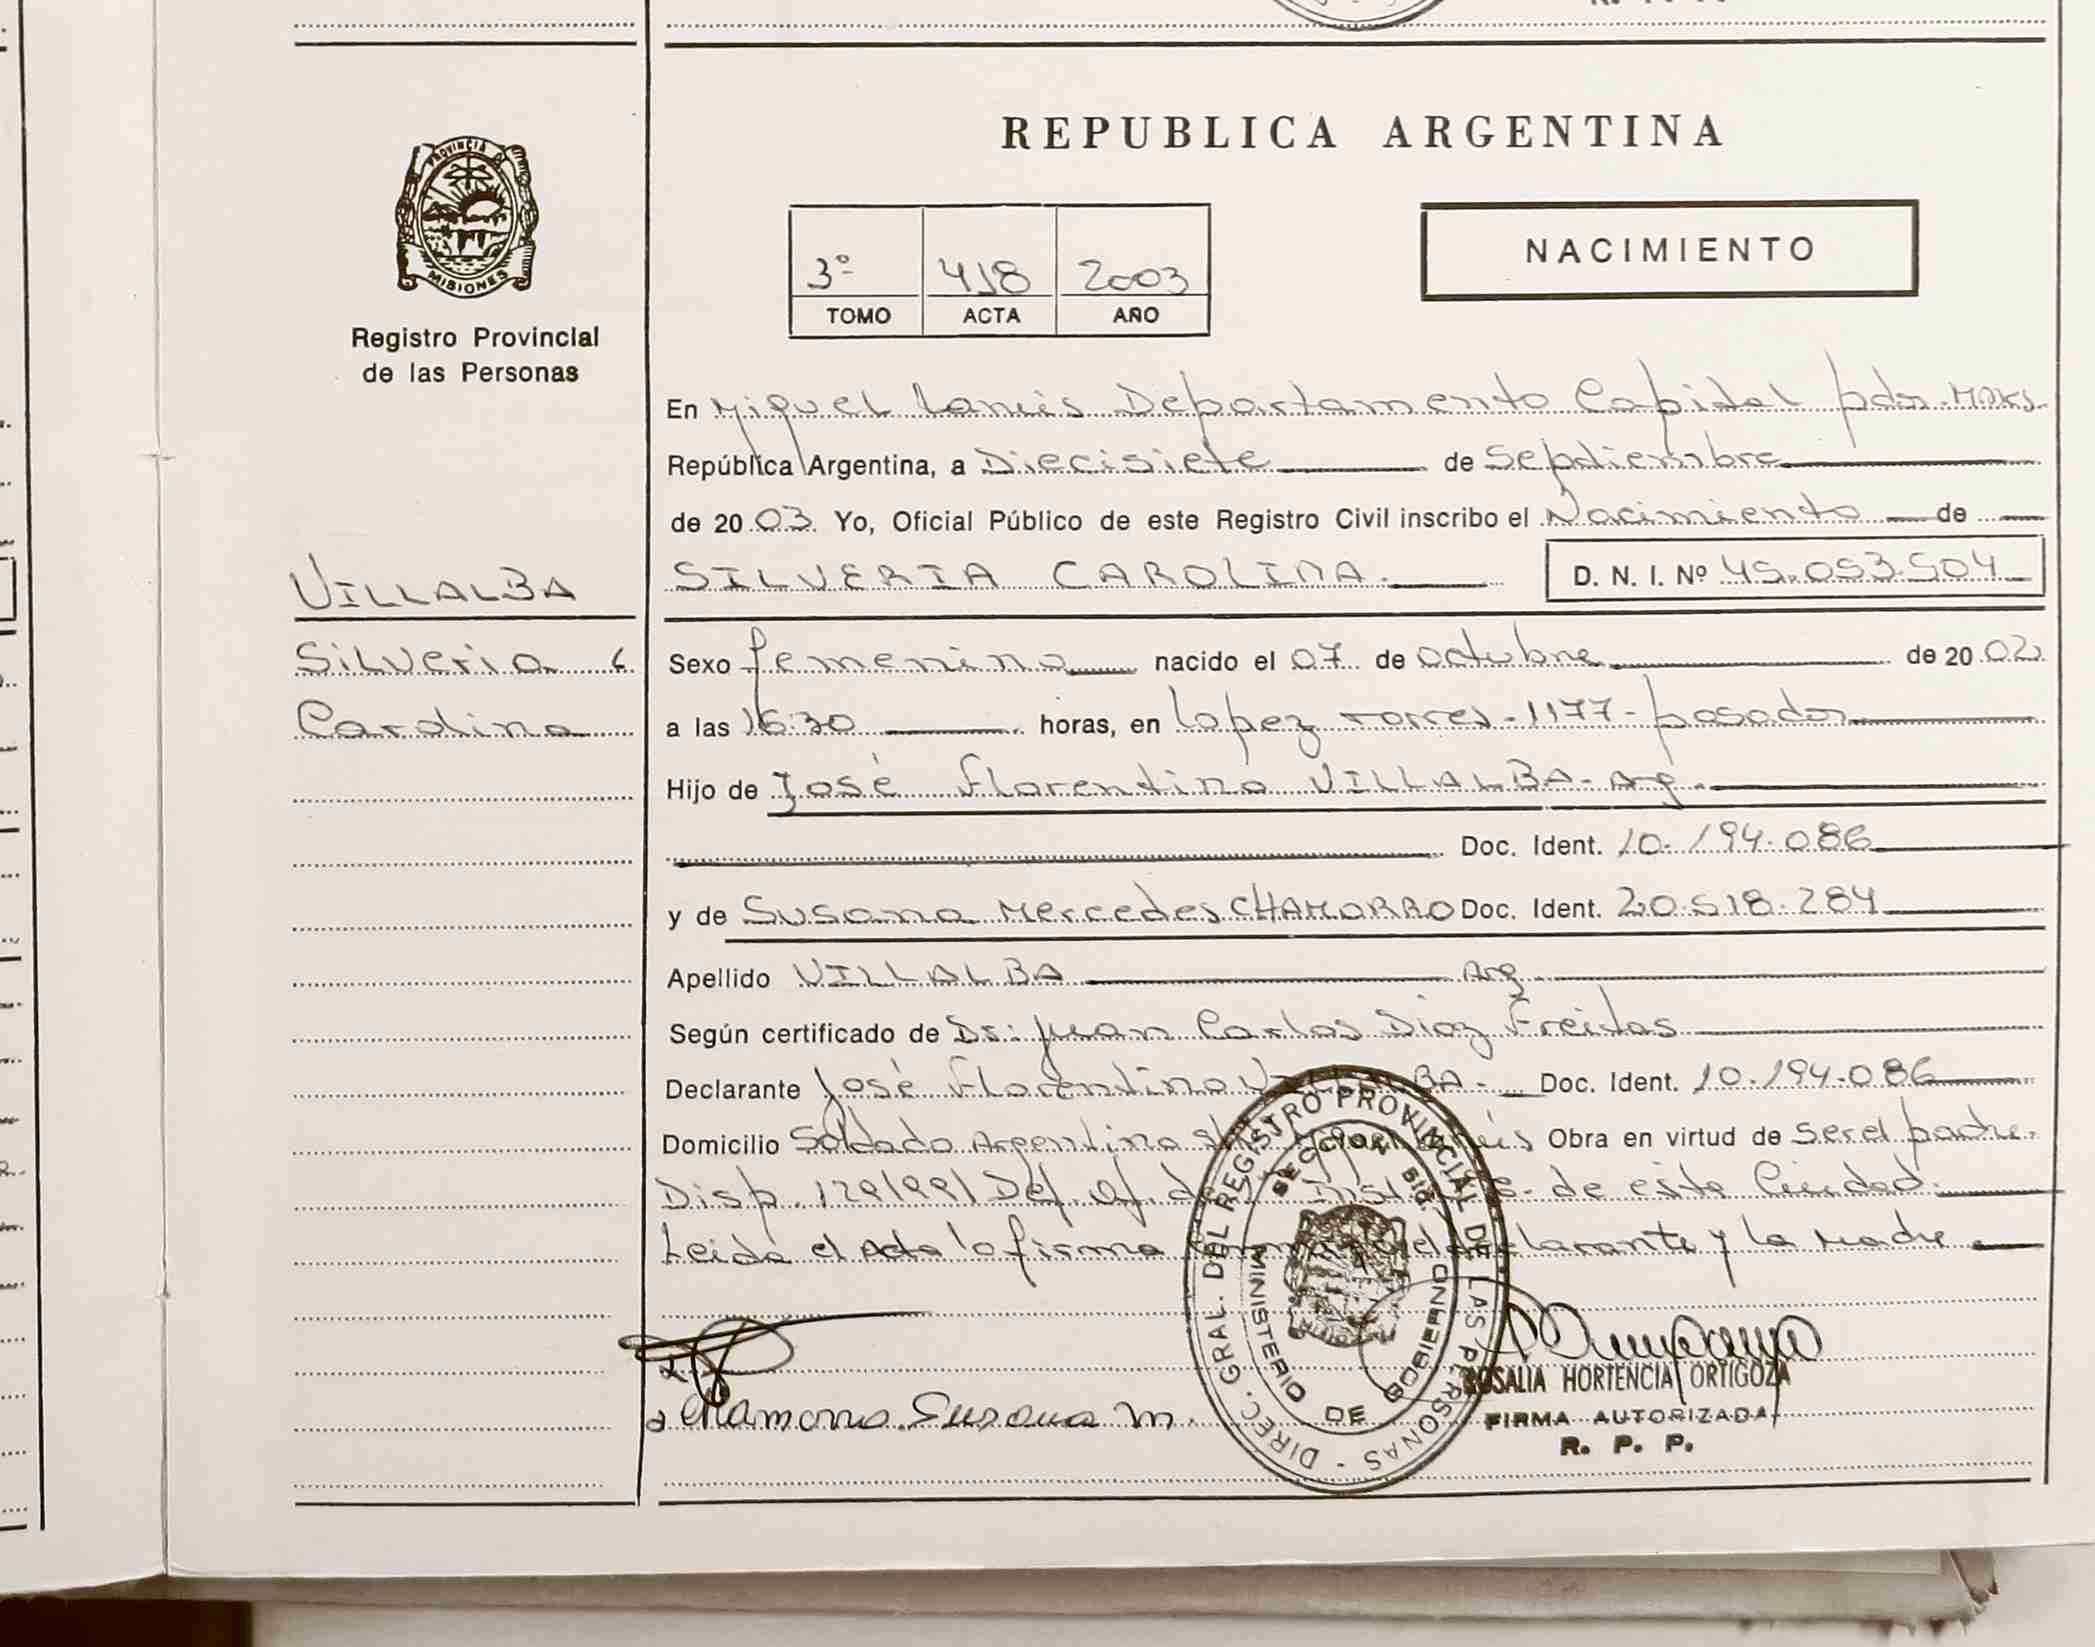 REPUBLICA ARGENTINA
PROVINCIA DE
MISIONES
Registro Provincial
de las Personas
3º 418 2003
TOMO ACTA AÑO
NACIMIENTO
En Miguel Lanús Departamento Capital pdas. Mnes.
República Argentina, a Diecisiete de Septiembre
de 2003. Yo, Oficial Público de este Registro Civil inscribo el Nacimiento de
SILVERIA CAROLINA. D. N. I. Nº 45.053.504
VILLALBA
Silveria
Carolina
Sexo femenino nacido el 07 de octubre de 2002
a las 16:30 horas, en Lopez Torres-1177-posadas
Hijo de José Florentino VILLALBA-Arg.
Doc. Ident. 10.194.086
y de Susana Mercedes CHAMORRO Doc. Ident. 20.518.284
Apellido VILLALBA Arg.
Según certificado de Dr: Juan Carlos Diaz Freitas
Declarante José Florentino VILLALBA- Doc. Ident. 10.194.086
Domicilio Soldado Argentino Miguel Lanús Obra en virtud de ser el padre.
Disp. Def. of. de de esta Ciudad.
Leida el Acta la firma conmigo el declarante y la Madre
Chamorro Susana M.
DIREC. GRAL. DEL REGISTRO PROVINCIAL DE LAS PERSONAS -
MINISTERIO DE GOBIERNO
ROSALIA HORTENCIA ORTIGOZA
FIRMA AUTORIZADA
R. P. P.